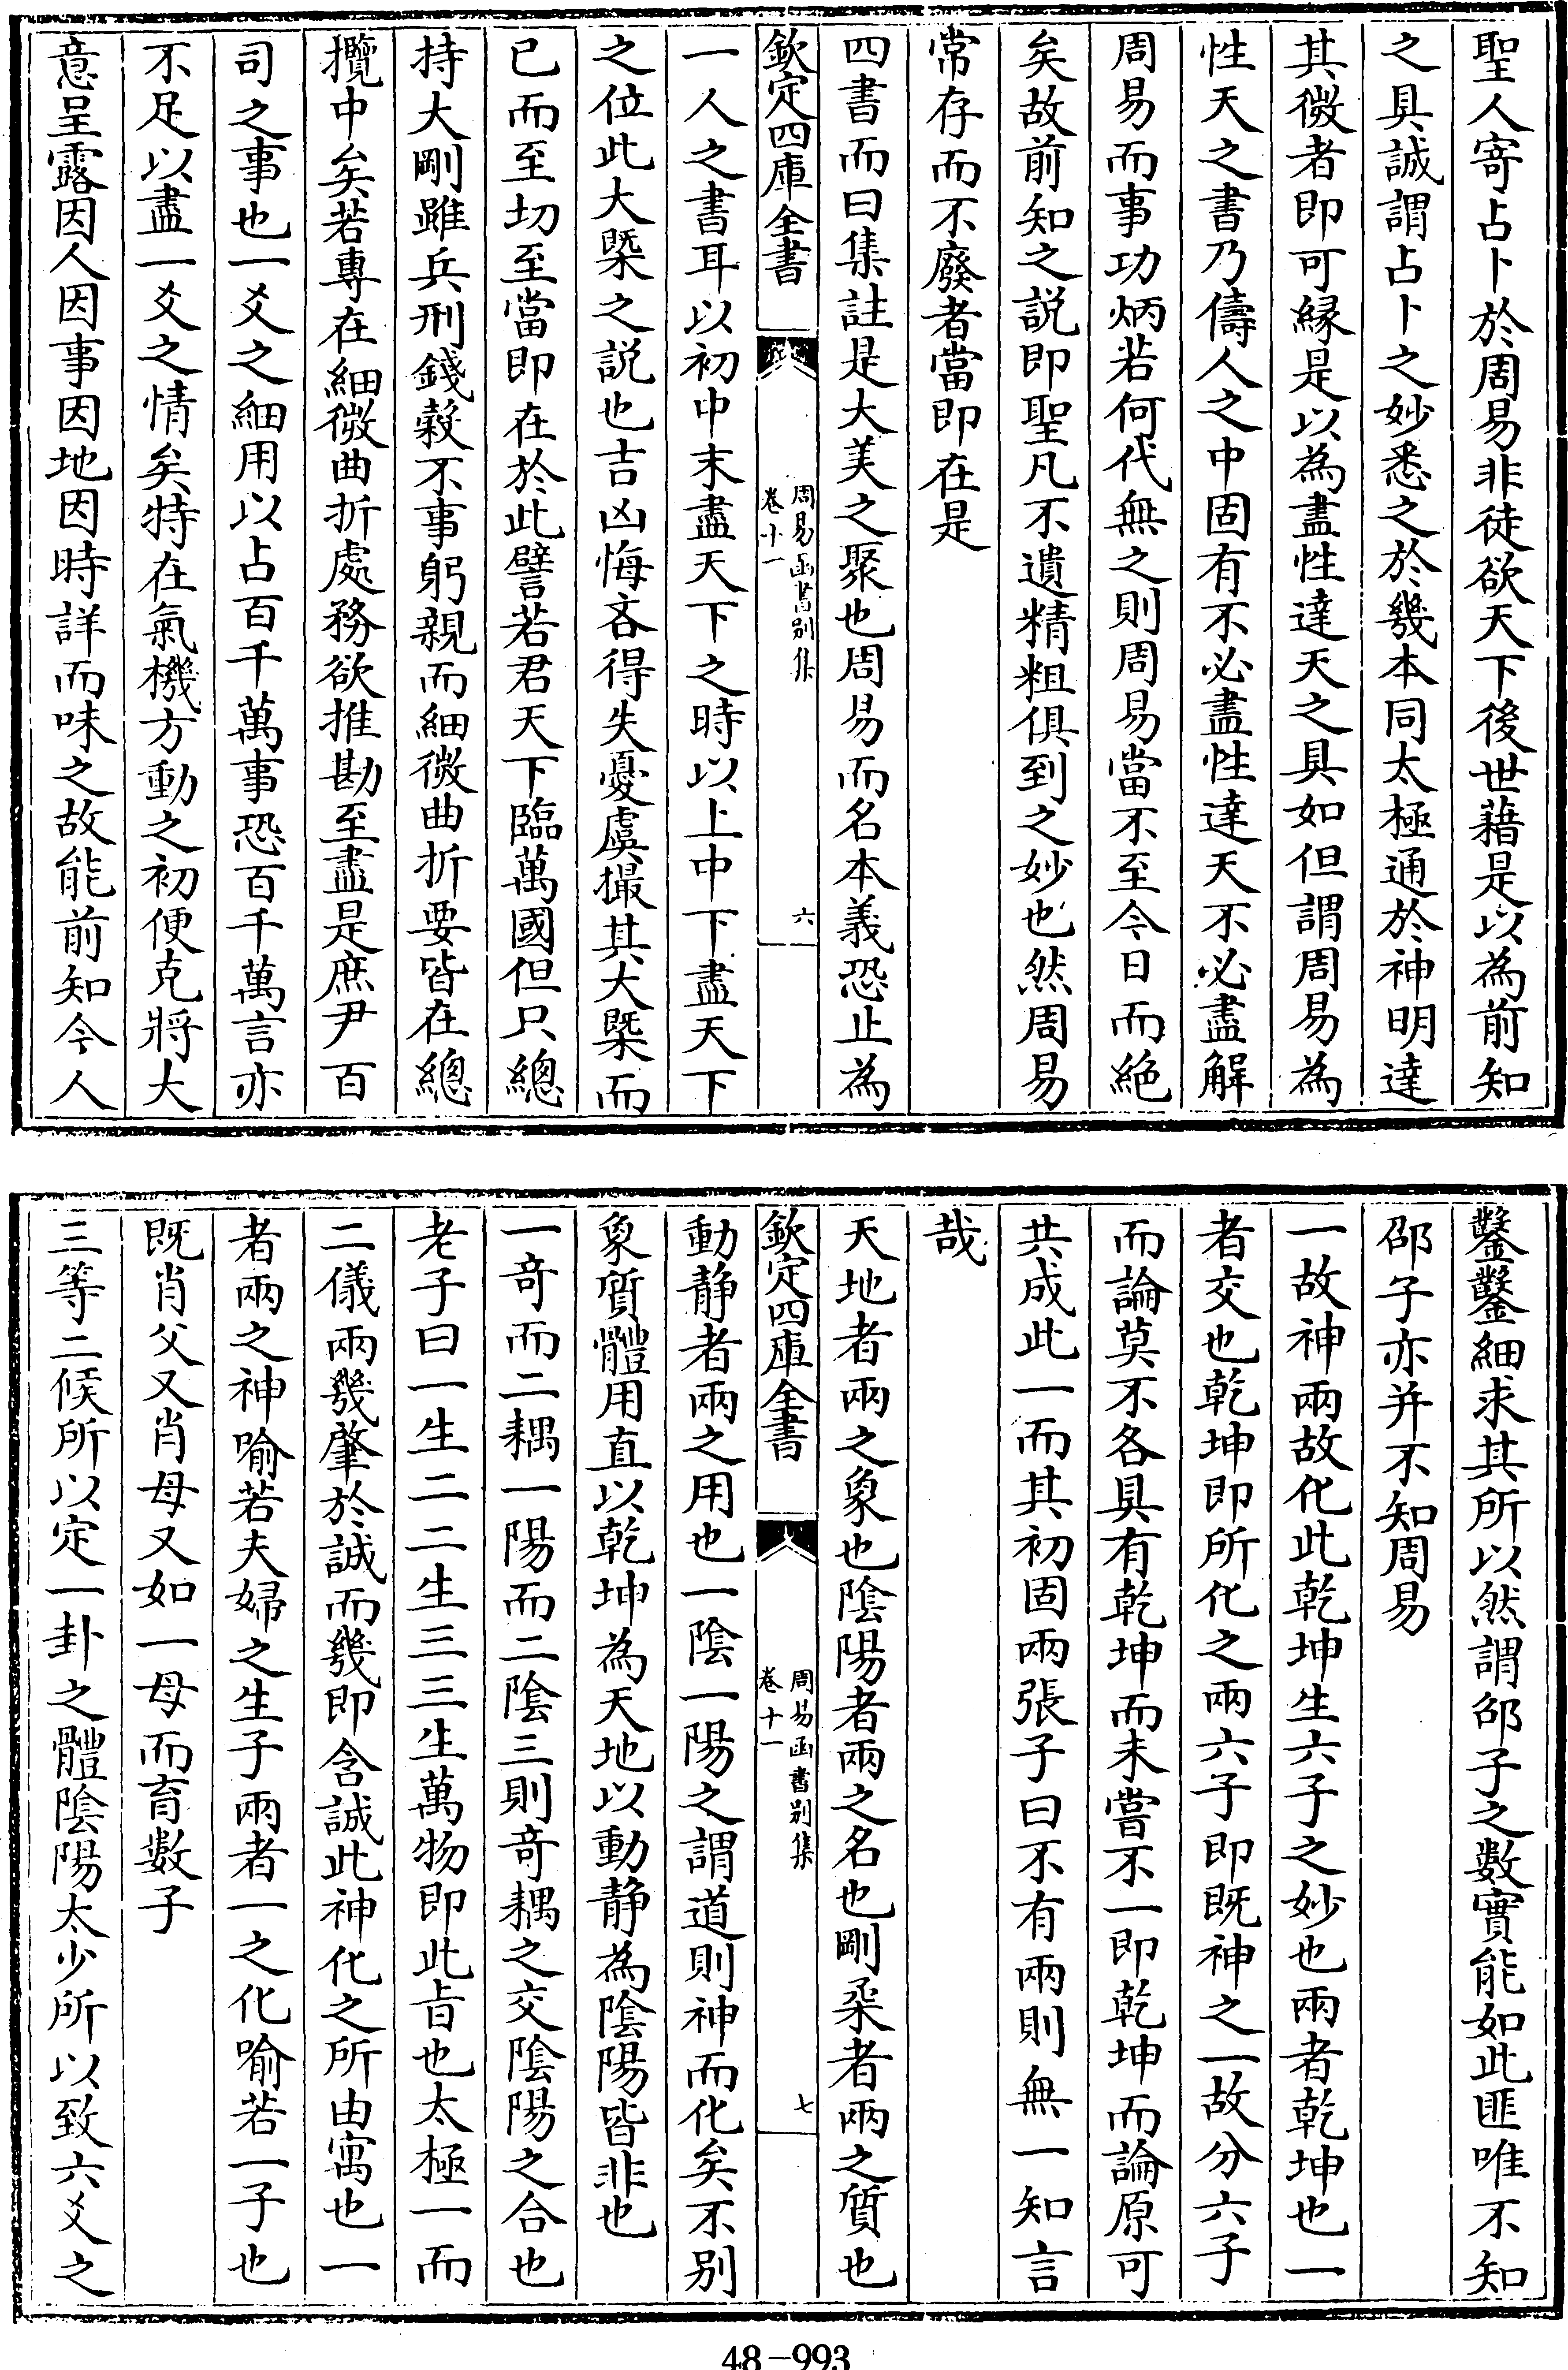 聖人寄占卜於周易非徒欲天下後世藉是以為前知
之具誠謂占卜之妙悉之於幾本同太極通於神明達
其微者即可緣是以為盡性達天之具如但謂周易為
性天之書乃儔人之中固有不必盡性達天不必盡解
周易而事功炳若何代無之則周易當不至今日而絕
矣故前知之説即聖凡不遺精粗俱到之妙也然周易
常存而不廢者當即在是
四書而曰集註是大美之聚也周易而名本義恐止為
欽定四庫全書
周易函書別集
卷十一
六
一人之書耳以初中末盡天下之時以上中下盡天下
之位此大槩之説也吉凶悔吝得失憂虞撮其大槩而
已而至切至當即在於此譬若君天下臨萬國但只總
持大剛雖兵刑錢穀不事躬親而細微曲折要皆在總
攬中矣若專在細微曲折處務欲推勘至盡是庶尹百
司之事也一爻之細用以占百千萬事恐百千萬言亦
不足以盡一爻之情矣特在氣機方動之初便克將大
意呈露因人因事因地因時詳而味之故能前知今人
鑿鑿細求其所以然謂邵子之數實能如此匪唯不知
邵子亦并不知周易
一故神兩故化此乾坤生六子之妙也兩者乾坤也一
者交也乾坤即所化之兩六子即既神之一故分六子
而論莫不各具有乾坤而未嘗不一即乾坤而論原可
共成此一而其初固兩張子曰不有兩則無一知言
哉
天地者兩之象也陰陽者兩之名也剛柔者兩之質也
欽定四庫全書
周易函書別集
卷十一
七
動静者兩之用也一陰一陽之謂道則神而化矣不別
象質體用直以乾坤為天地以動静為陰陽皆非也
一奇而二耦一陽而二陰三則奇耦之交陰陽之合也
老子曰一生二二生三三生萬物即此旨也太極一而
二儀兩幾肇於誠而幾即含誠此神化之所由寓也一
者兩之神喻若夫婦之生子兩者一之化喻若一子也
既肖父又肖母又如一母而育數子
三等二候所以定一卦之體陰陽太少所以致六爻之
48-993